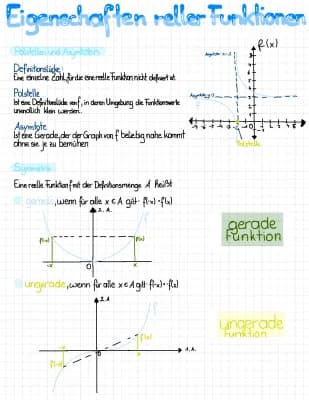 Eigenschaften reller Funktionen
Polstellen und Asymtoten
Definitionslücke
Eine einzelne Zahl, für die eine reelle Funktion nicht definiert ist
Polstelle
Ist eine Definitionslücke von f, in deren Umgebung die Funktionswerte
unendlich klein werden.
Asymtote
Ist eine Gerade, der der Graph von f beliebig nahe kommt
ohne sie je zu berühren
f(x)
Polstelle
Symmetrie
Eine reelle Funktion f mit der Definitionsmenge A heißt
gerade, wenn für alle x ∈ A gilt: f(-x)=f(x)
2.A.
f(-x)
f(x)
-x
0
x
gerade
Funktion
ungerade, wenn für alle x ∈ A gilt: f(-x)=-f(x)
2.A
f
f(x)
0
1.A.
f(-x)
ungerade
Funktion